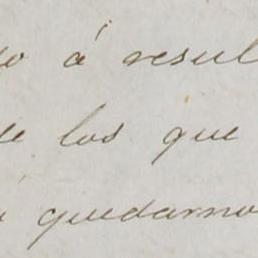 do á resul
de los que
quedarno